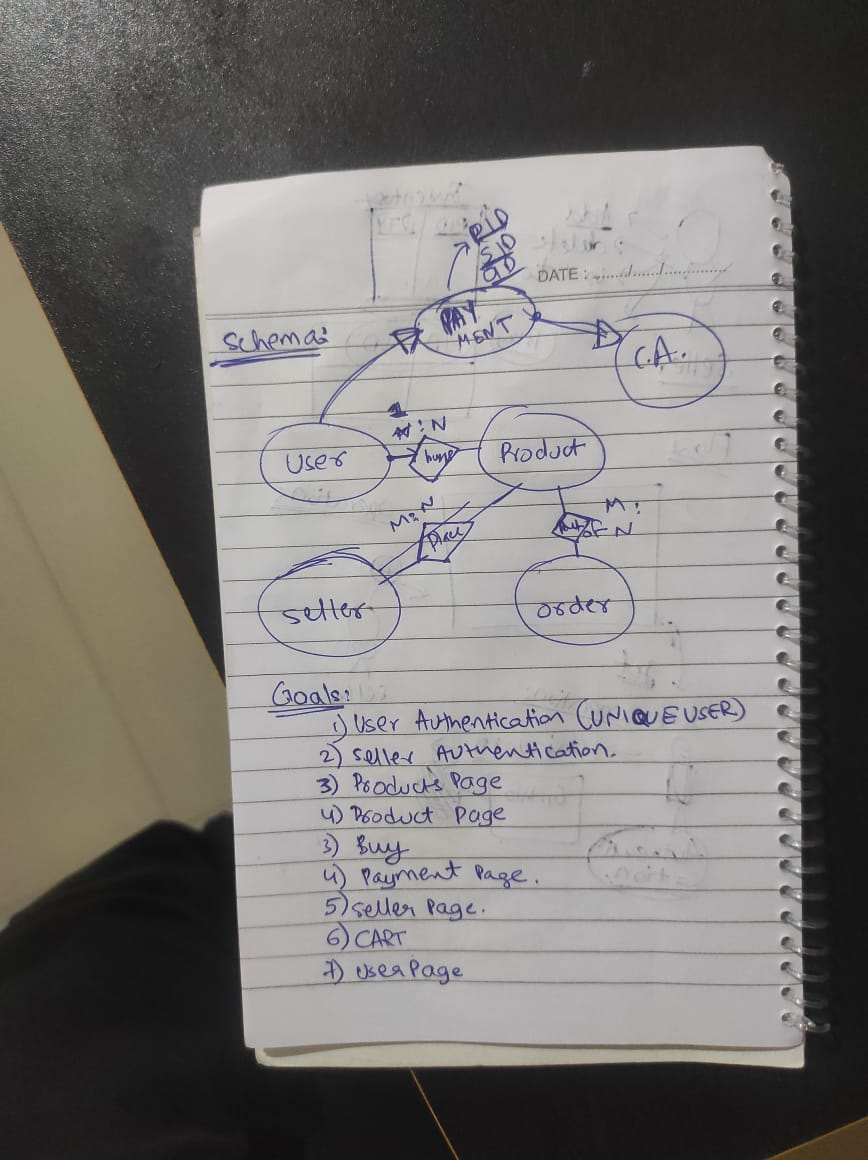 PID
SID
DATE :
PAY
MENT
Schema:
C.A.
1
M:N
User
Product
M:N
Place
M:
of N
Seller
order
Goals:
1) User Authentication (UNIQUE USER)
2) Seller Authentication.
3) Products Page
4) Product Page
3) Buy
4) Payment Page.
5) Seller Page.
6) CART
7) User Page